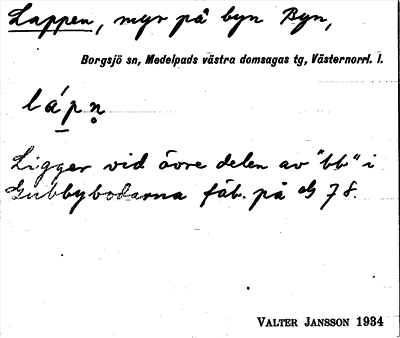 Lappen, myr på byn Byn,
Borgsjö sn, Medelpads västra domsagas tg, Västernorrl. l.
lá̱pn̥
Ligger vid övre delen av "bb" i
Gubbybodarna fäb. på G 78.
VALTER JANSSON 1934